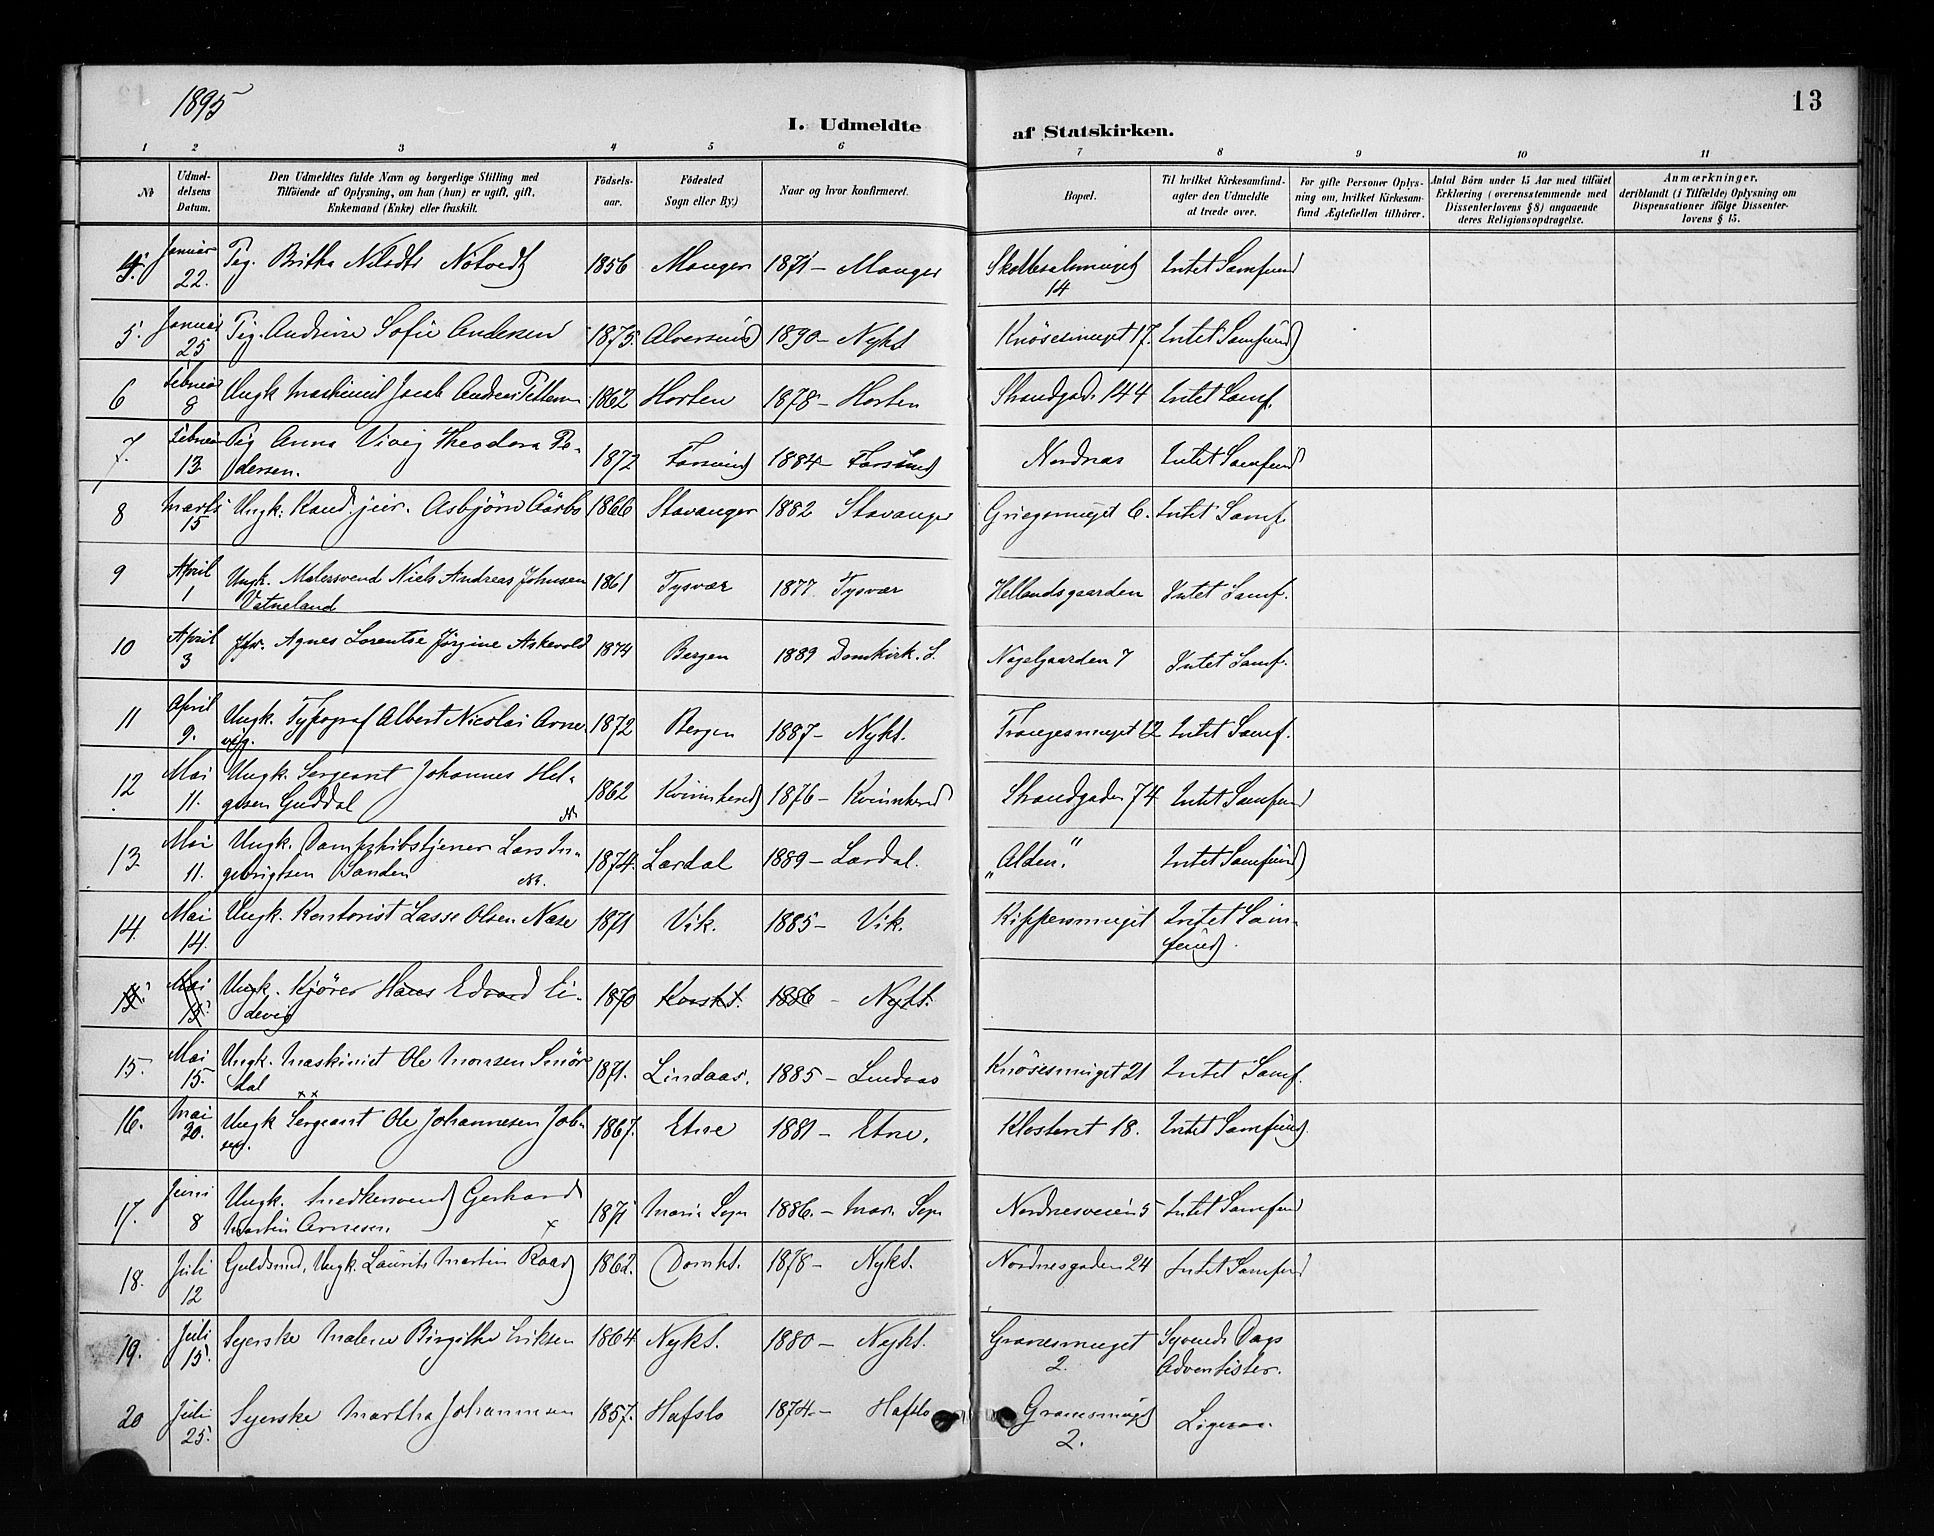 1895
13
I. Udmeldte af Statskirken.
1 2 3 4 5 6 7 8 9 10 11
No
Udmel-
delsens
Datum.
Den Udmeldtes fulde Navn og borgerlige Stilling med
Tilföiende af Oplysning, om han (hun) er ugift, gift,
Enkemand (Enke) eller fraskilt.
Födsels-
aar.
Födested
Sogn eller By.)
Naar og hvor konfirmeret.
Bopæl.
Til hvilket Kirkesamfund-
agter den Udmeldte
at træde over.
For gifte Personer Oplys-
ning om, hvilket Kirkesam-
fund Ægtefællen tilhörer.
Antal Börn under 15 Aar med tilföiet
Erklæring (overensstemmende med
Dissenterlovens § 8) angaaende
deres Religionsopdragelse.
Anmærkninger,
deriblandt (i Tilfælde) Oplysning om
Dispensationer ifölge Dissenter-
lovens § 15.
Januar 22. Pig. Britha Nilsdtr Nötvedt 1856 Manger 1871 – Manger Skottesalsmuget 14 Intet Samfund
5. Januar 25 Pig. Andrine Sofie Andersen 1875. Alversund 1890 – Nykt Knösesmuget 17. Intet Samfund
6 Februar 8 Ungk Maskinist Jacob Andreas 1862 Horten 1878 – Horten Strandgad. 144 Intet Samf.
7. Februar 13. Pig Anna Viveig Theodora Pe-
dersen. 1872 Farsund 1884 – Farsund Nordnæs Intet Samfund
8 Marts 15 Ungk. Kand. jur. Asbjörn Aarbo 1866 Stavanger 1882 Stavanger Griegsmuget 6. Intet Samf.
9 April 1 Ungk. Malersvend Niels Andreas Johnsen
Vatneland 1861 Tysvær 1877 Tysvær Hellandsgaarden Intet Samf.
10 April 3 Jfr. Agnes Lorentse Jørgine Askevold 1874 Bergen 1889 Domkirk. S. Nagelgaarden 7 Intet Samf.
11 April 9. Ungk. Typograf Albert Nicolai Arne-
vig. 1872 Bergen 1887 – Nykt. Trangesmuget 12 Intet Samf.
12 Mai 11. Ungk. Sergeant Johannes Hel-
gesen Guddal 1862 Kvinnherad 1876 – Kvinnherad Strandgaden 74 Intet Samfund
13 Mai 11. Ungk. Dampskibstjener Lars In-
gebrigtsen Sanden 1874. Lærdal 1889 – Lærdal. „Alden." Intet Samfund
14. Mai 14. Ungk. Kontorist Lasse Olsen Næse 1871 Vik. 1885 – Vik. Kippersmuget Intet Sam-
fund.
15. Mai 15. Ungk. Kjörer Hans Edvard Ei-
devig 1870 Korskt. 1886 – Nykt.
15. Mai 15. Ungk. Maskinist Ole Monsen Smör-
dal 1871. Lindaas. 1885 – Lindaas Knösesmuget 21 Intet Samf.
16. Mai 20. Ungk Sergeant Ole Johannesen 1867. Etne 1881 – Etne. Klosteret 18. Intet Samfund.
17. Juni 8 Ungk. Snedkersvend Gerhard
Martin Arnesen. 1871 Maria Sogn 1886. – Mar. Sogn Nordnesveien 5 Intet Samfund
18. Juli 12 Guldsmd, Ungk. Laurits Martin Raad 1862. Domkt. 1878 – Nykt. Nordnesgaden 24 Intet Samfund
19. Juli 15. Syerske Malene Birgithe Eriksen 1864 Nykt. 1880 – Nykt. Granesmuget 2. Syvende Dags
Adventister.
20 Juli 25. Syerske Martha Johannesen 1857. Hafslo 1874. – Hafslo Granesmuget 2. Ligesaa.